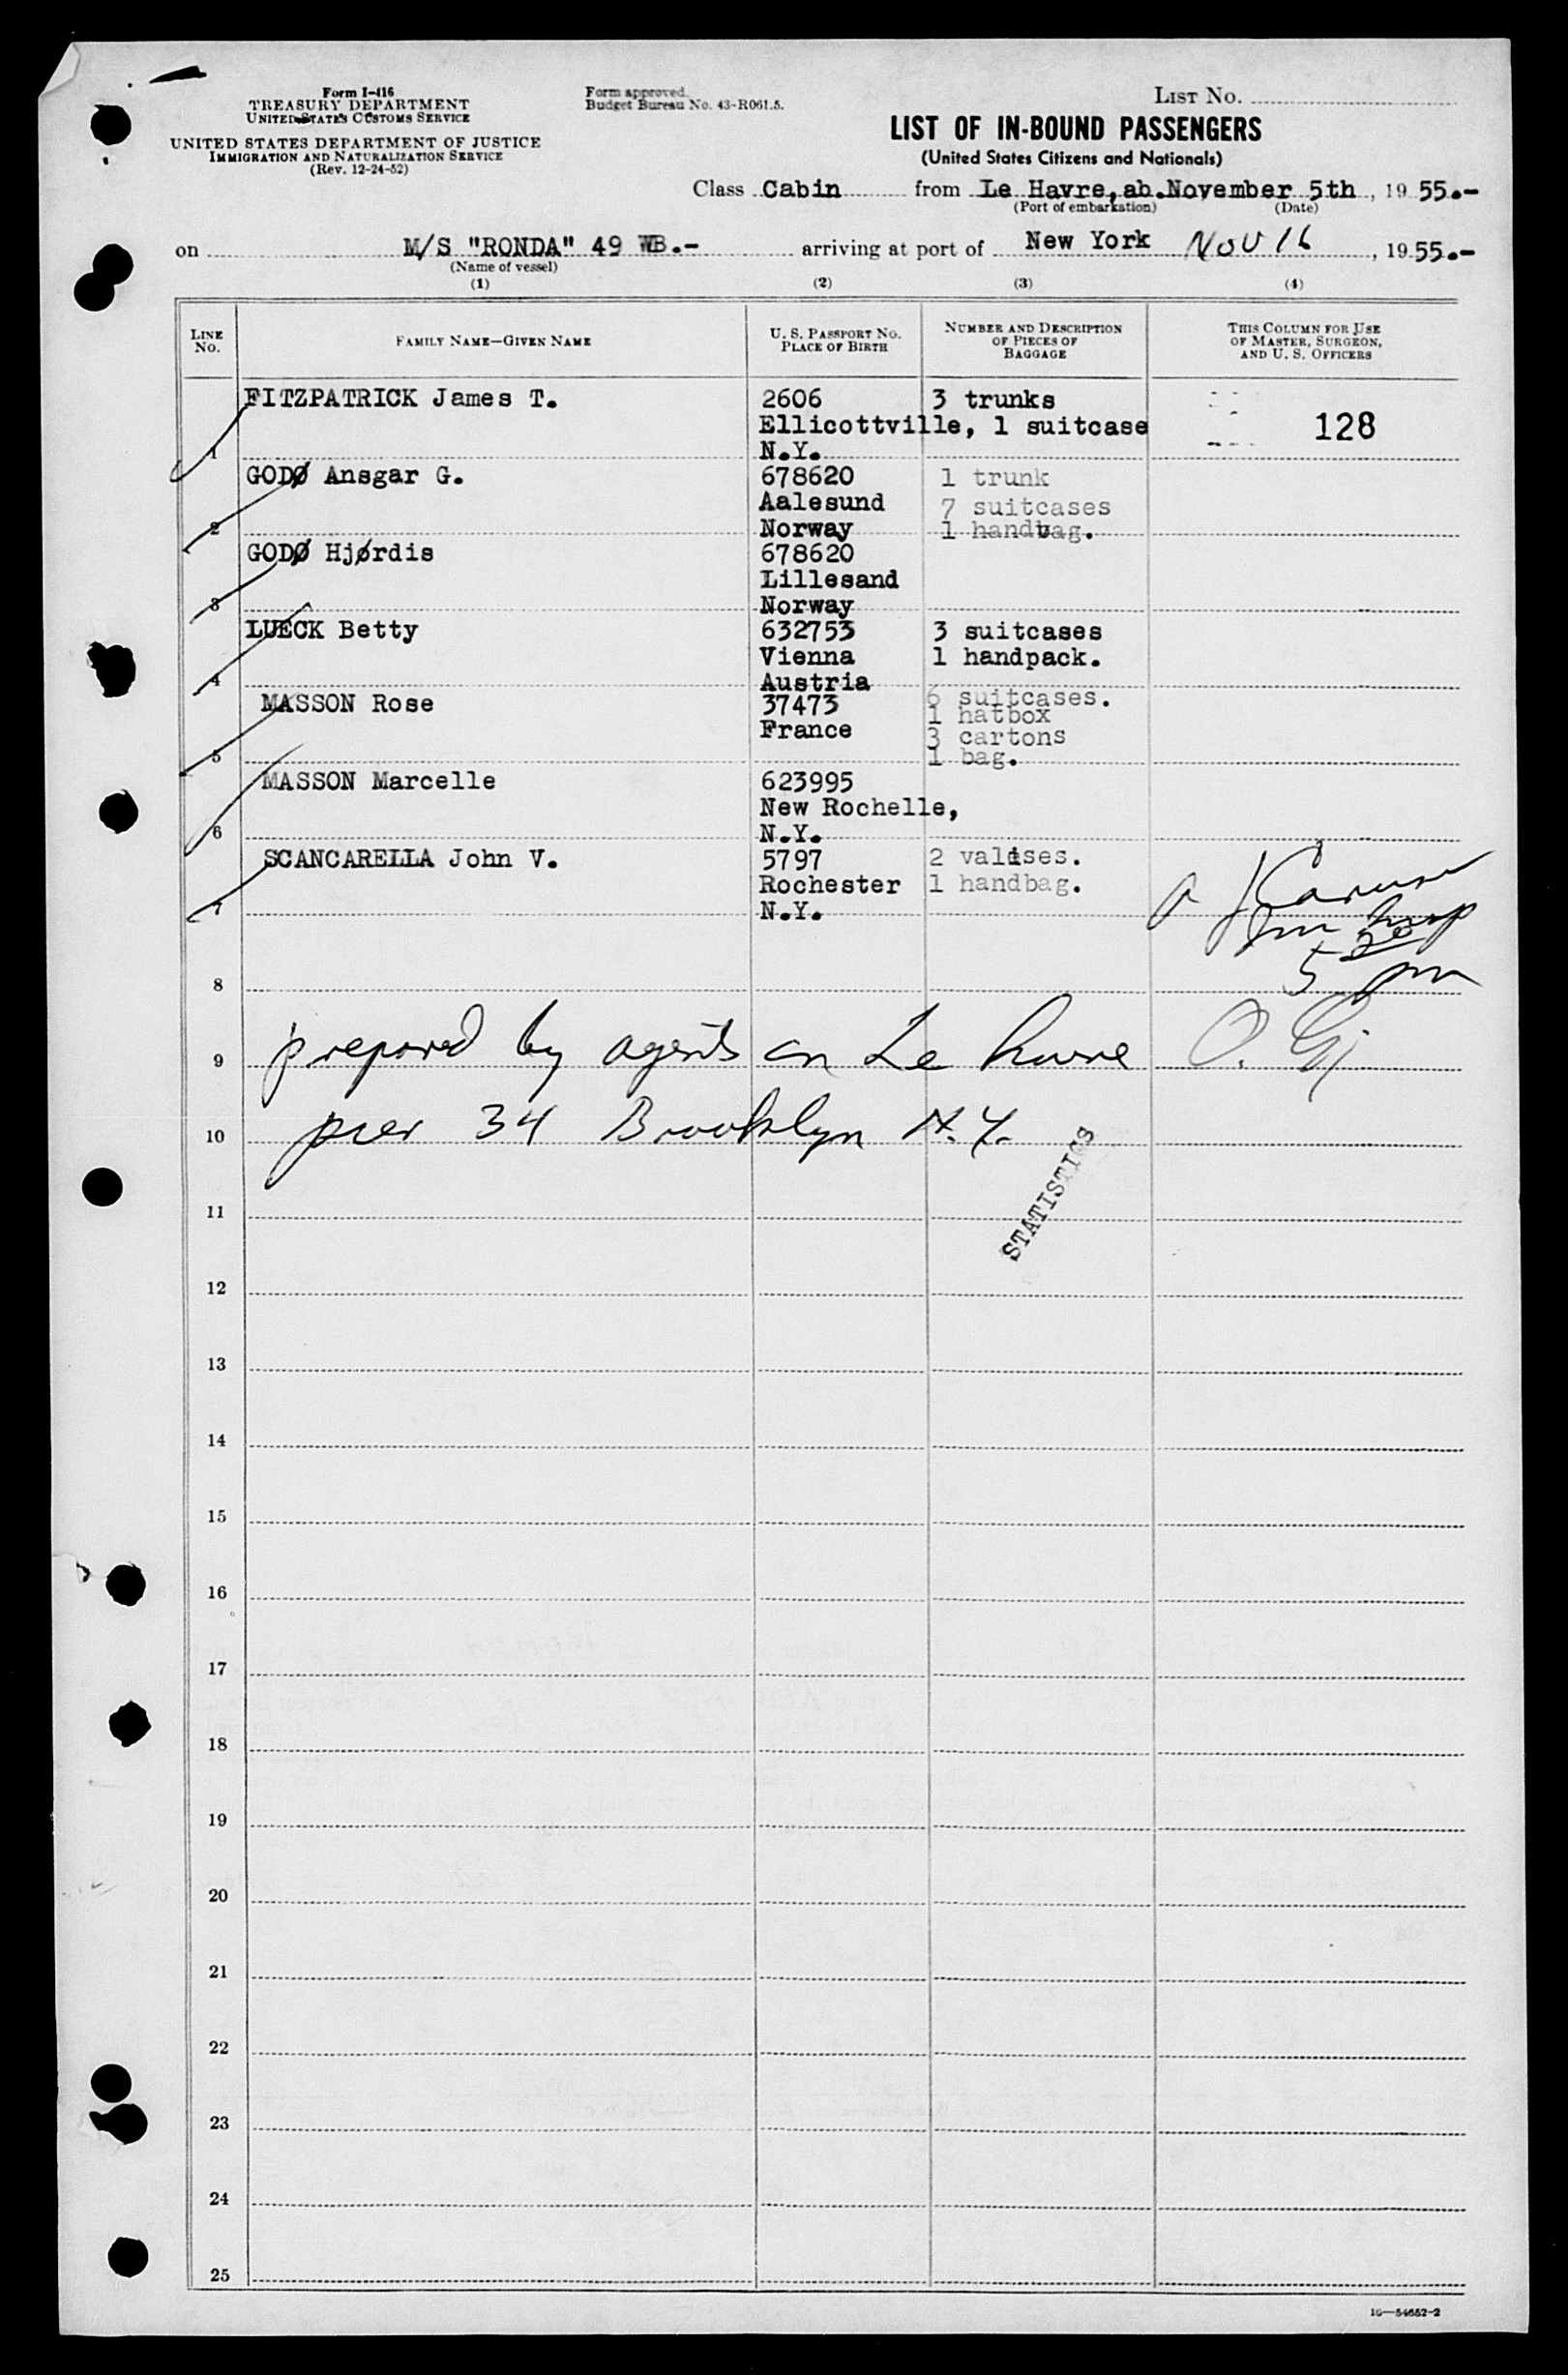 Form I-416
TREASURY DEPARTMENT
UNITED STATES CUSTOMS SERVICE
UNITED STATES DEPARTMENT OF JUSTICE
IMMIGRATION AND NATURALIZATION SERVICE
(Rev. 12-24-52)
Form approved.
Budget Bureau No. 43-R061.5.
LIST NO.
LIST OF IN-BOUND PASSENGERS
(United States Citizens and Nationals)
Class Cabin from Le Havre, ab. November 5th, 19 55.-
(Port of embarkation) (Date)
on M/S "RONDA" 49 WB.- arriving at port of New York Nov 16, 19 55.-
(Name of vessel)
(1) (2) (3) (4)
LINE NO.
FAMILY NAME—GIVEN NAME
U. S. PASSPORT NO.
PLACE OF BIRTH
NUMBER AND DESCRIPTION
OF PIECES OF
BAGGAGE
THIS COLUMN FOR USE
OF MASTER, SURGEON,
AND U. S. OFFICERS
FITZPATRICK James T. 2606 3 trunks
Ellicottville, 1 suitcase 128
1 N.Y.
GODØ Ansgar G. 678620 1 trunk
Aalesund 7 suitcases
2 Norway 1 handbag.
GODØ Hjørdis 678620
Lillesand
3 Norway
LUECK Betty 632753 3 suitcases
Vienna 1 handpack.
4 Austria
MASSON Rose 37473 6 suitcases.
1 hatbox
France 3 cartons
5 1 bag.
MASSON Marcelle 623995
New Rochelle,
6 N.Y.
SCANCARELLA John V. 5797 2 valises.
Rochester 1 handbag.
7 N.Y.
5 20 pm
8
9 prepared by agents in Le havre
10 pier 34 Brooklyn N.Y.
STATISTICS
11
12
13
14
15
16
17
18
19
20
21
22
23
24
25
16—54652-2